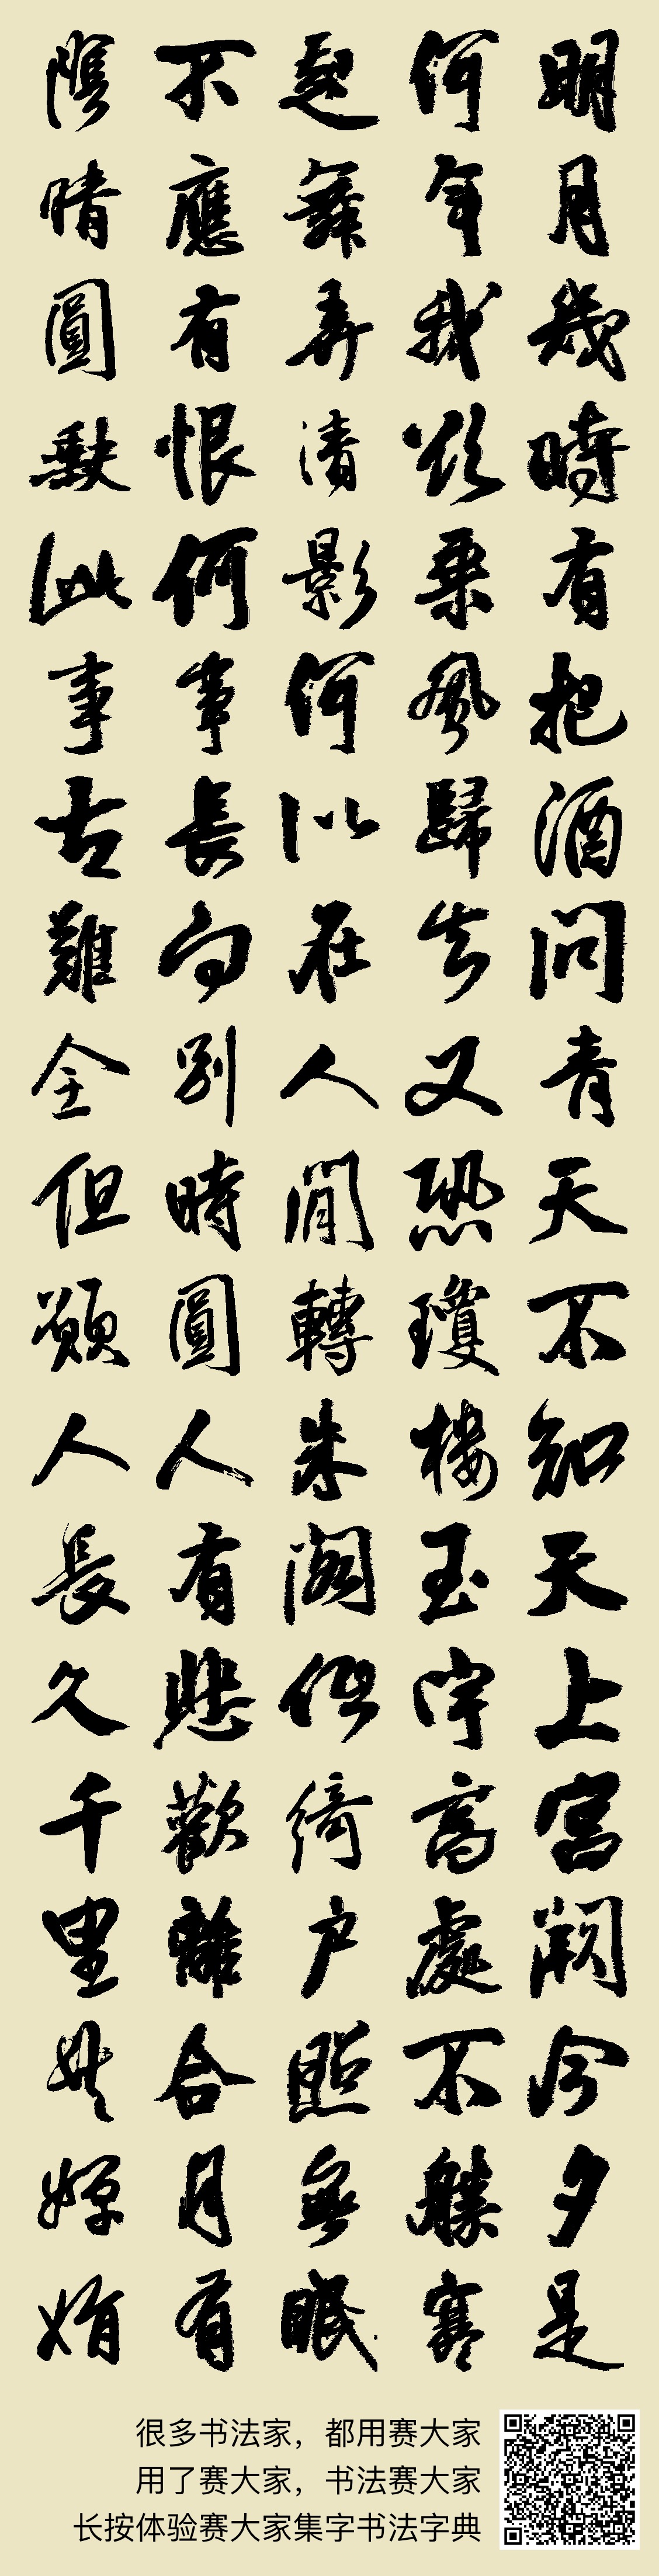 明月幾時有把酒問青天不知天上宮闕今夕是
何年我欲乘風歸去又恐瓊樓玉宇高處不勝寒
起舞弄清影何似在人間轉朱閣低綺戶照無眠
不應有恨何事長向別時圓人有悲歡離合月有
陰晴圓缺此事古難全但願人長久千里共嬋娟
很多书法家，都用赛大家
用了赛大家，书法赛大家
长按体验赛大家集字书法字典